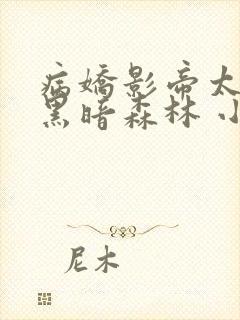 病嬌影帝太
黑暗森林 小
尼木